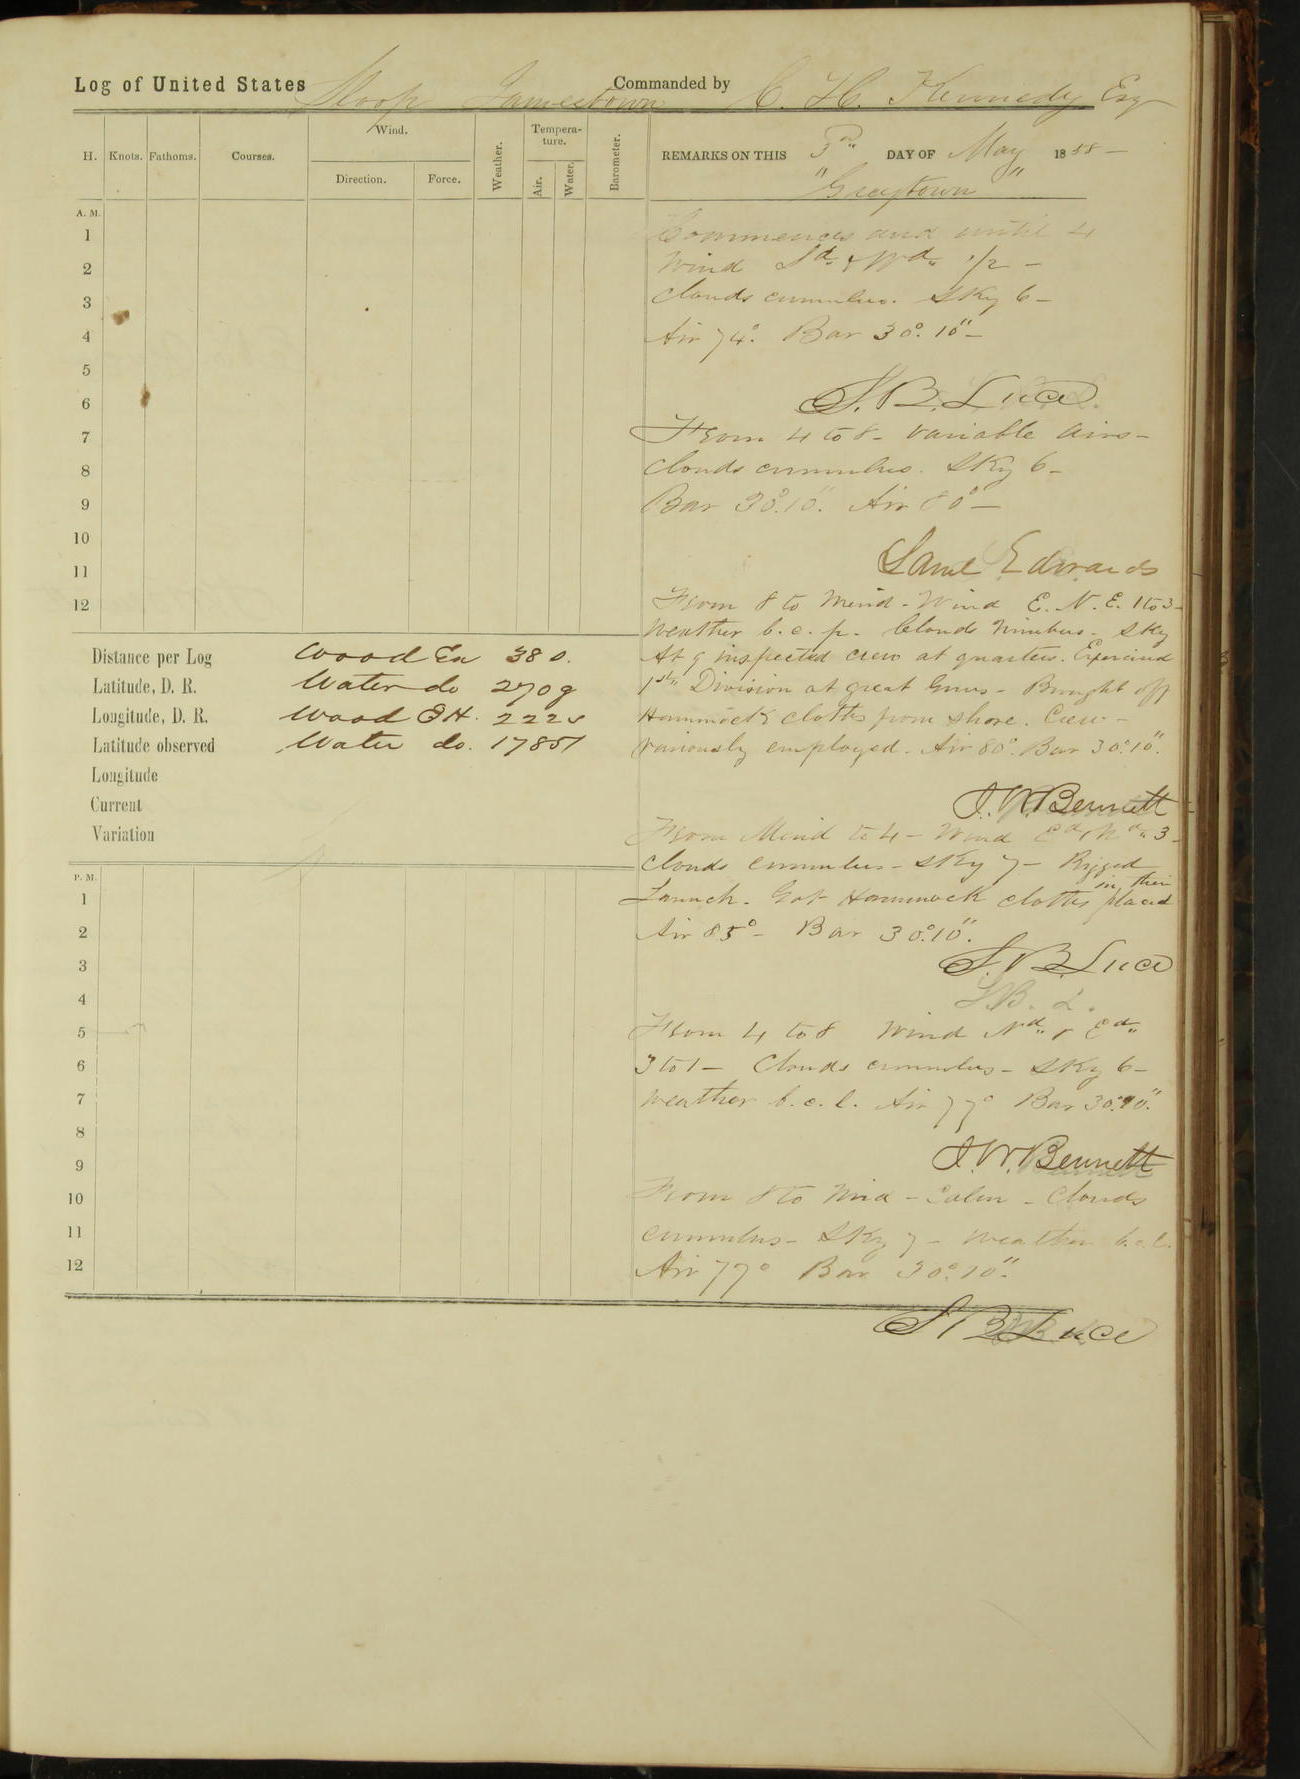 Log of United States Sloop Jamestown Commanded by C. H. Kennedy Esq
H. Knots. Fathoms. Courses. Wind. Direction. Force. Weather. Tempera-ture. Air. Water. Barometer.
REMARKS ON THIS 3rd DAY OF May 1858 —
"Greytown"
A. M.
1
2
3
4
5
6
7
8
9
10
11
12
Commences and until 4
Wind Sd. & Wd. 1/2 —
Clouds cumulus. Sky 6 —
Air 74°. Bar 30°.10" —
S. B. Luce
From 4 to 8 — Variable airs —
Clouds cumulus. Sky 6 —
Bar 30°.10". Air 80° —
Saml Edwards
From 8 to Merid - Wind E. N. E. 1 to 3 —
Weather b. c. p. Clouds Nimbus - Sky
At 9 inspected crew at quarters. Exercised
1st Division at great Guns - Brought off
Hammock cloths from shore. Crew -
variously employed. Air 80°. Bar 30°.10".
J. W. Bennett
Distance per Log
Latitude, D. R.
Longitude, D. R.
Latitude observed
Longitude
Current
Variation
Wood Ex 380.
Water do 2709
Wood O H. 222
Water do. 17851
P. M.
1
2
3
4
5
6
7
8
9
10
11
12
From Merid to 4 — Wind Ed, Nd. 3 —
Clouds cumulus — Sky 7 — Rigged
Launch. Got Hammock cloths placed in their
Air 85° — Bar 30°.10".
S. B. Luce
S. B. L.
From 4 to 8 Wind Nd. & Ed.
3 to 1 — Clouds cumulus — Sky 6 —
Weather b. c. l. Air 77° Bar 30°.10".
J. W. Bennett
From 8 to Mid — Calm — Clouds
cumulus — Sky 7 — Weather b. c. l.
Air 77° Bar 30°.10".
S B Luce